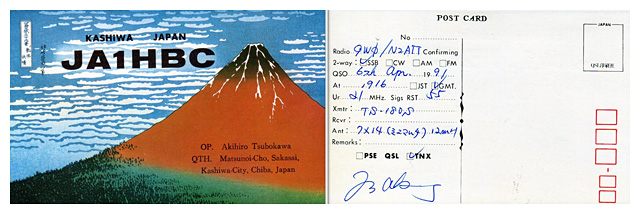 KASHIWA JAPAN
JA1HBC
OP. Akihiro Tsubokawa
QTH. Matsunoi-Cho, Sakasai,
Kashiwa-City, Chiba, Japan
POST CARD
No
Radio 9WØ/N2ATT Confirming
2-way: SSB CW AM FM
QSO 6th Apr. 1991
At 0916 JST GMT.
Ur 21 MHz. Sigs RST 55
Xmtr: TS-180S
Rcvr:
Ant: 12mH
Remarks:
PSE QSL TNX
JAPAN
QSL印刷社